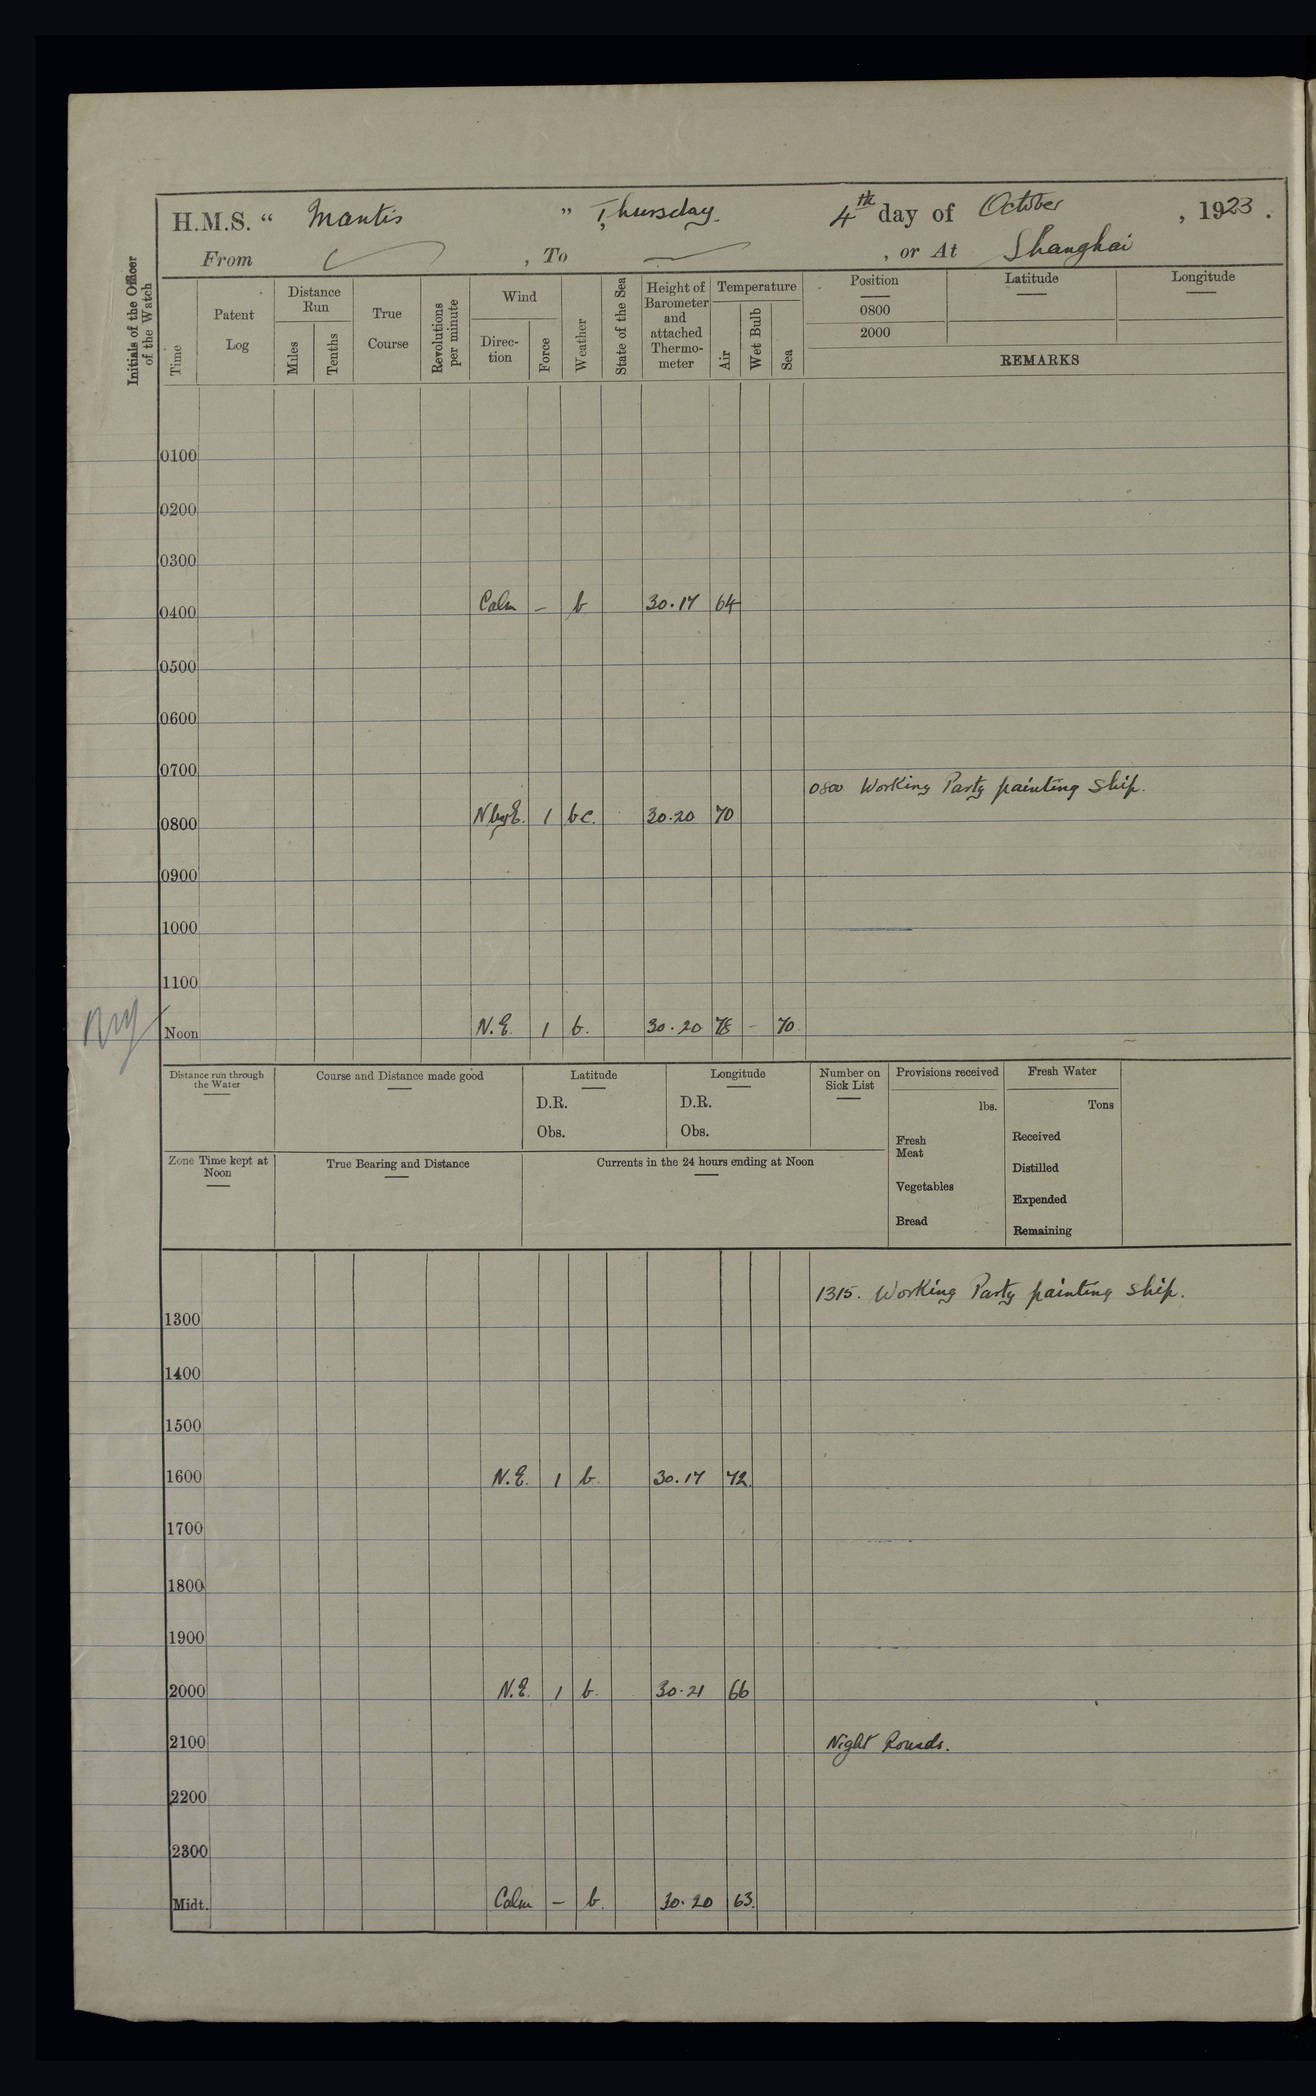 H.M.S. “ Mantis ” Thursday. 4th day of October , 1923 .
From , To , or At Shanghai
Initials of the Officer of the Watch
Time
Patent Log
Distance Run
Miles
Tenths
True Course
Revolutions per minute
Wind
Direc-tion
Force
Weather
State of the Sea
Height of Barometer and attached Thermo-meter
Temperature
Air
Wet Bulb
Sea
Position
0800
2000
Latitude
Longitude
REMARKS
0100
0200
0300
0400 Calm – b 30.17 64
0500
0600
0700
0800 Working Party painting ship.
0800 NbyE. 1 bc. 30.20 70
0900
1000
1100
Noon N.E. 1 b. 30.20 78 – 70.
Distance run through the Water
Course and Distance made good
Latitude
D.R.
Obs.
Longitude
D.R.
Obs.
Number on Sick List
Provisions received
lbs.
Fresh Meat
Vegetables
Bread
Fresh Water
Tons
Received
Distilled
Expended
Remaining
Zone Time kept at Noon
True Bearing and Distance
Currents in the 24 hours ending at Noon
1315. Working Party painting ship.
1300
1400
1500
1600 N.E. 1 b. 30.17 72.
1700
1800
1900
2000 N.E. 1 b. 30.21 66
2100 Night Rounds.
2200
2300
Midt. Calm – b. 30.20 63.